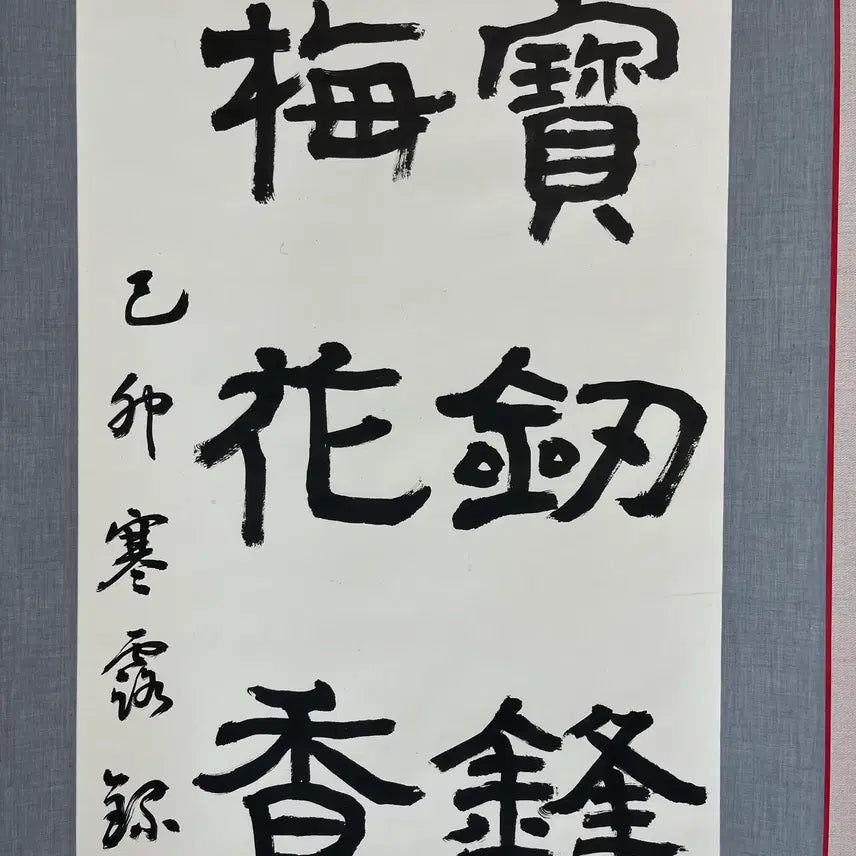 寶釼鋒
梅花香
己卯寒露錄